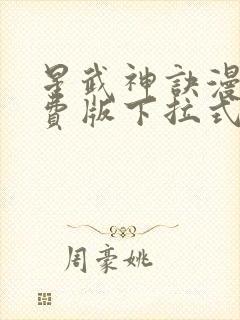 星武神訣漫
費版下拉式
周豪姚